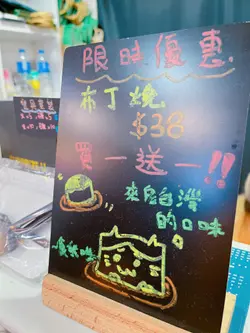 限時優惠
布丁燒
$38
買一送一!!
來自台灣
的口味